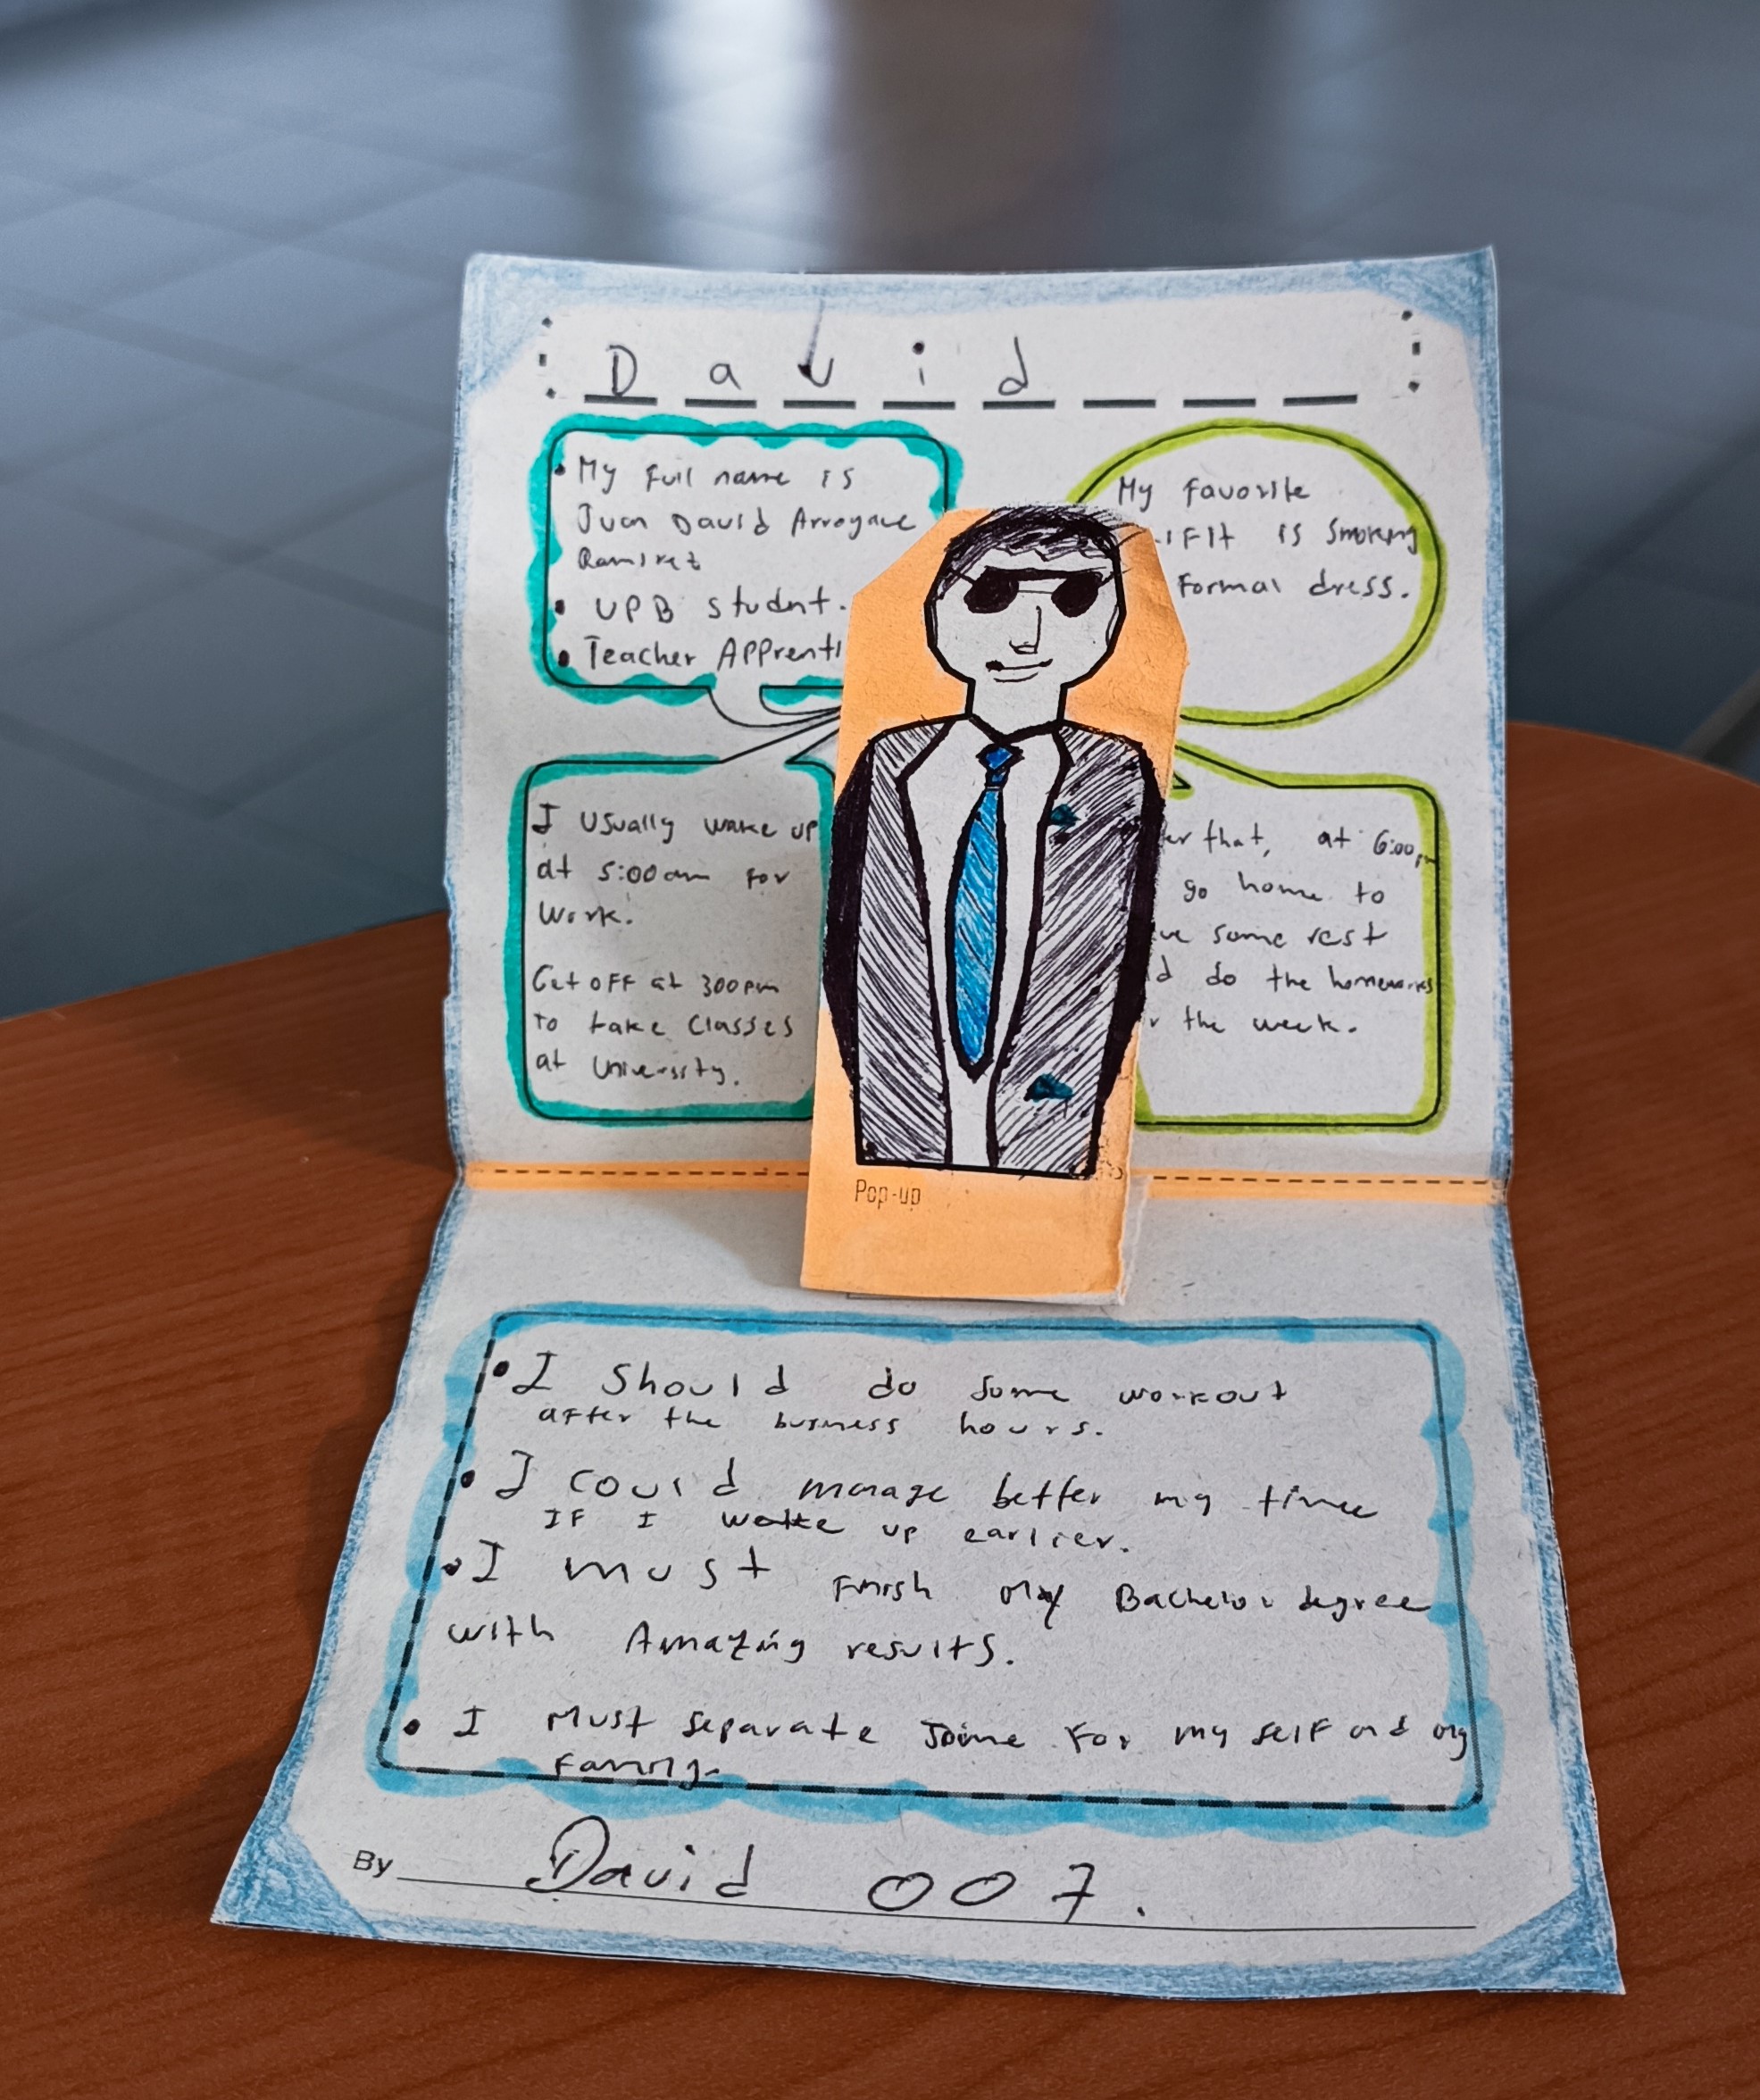 David
• My full name is
Juan David Arroyave
Ramirez
• UPB student.
• Teacher Apprenti
My favorite
is smoking
formal dress.
I usually wake up
at 5:00am for
work.
Get off at 300pm
to take classes
at university.
er that, at 6:00pm
go home to
ve some rest
d do the homeworks
r the week.
Pop-up
• I should do some workout
after the business hours.
• I could manage better my time
IF I wake up earlier.
• I must finish my Bachelor degree
with Amazing results.
• I Must separate for my self and my
family.
By David 007.